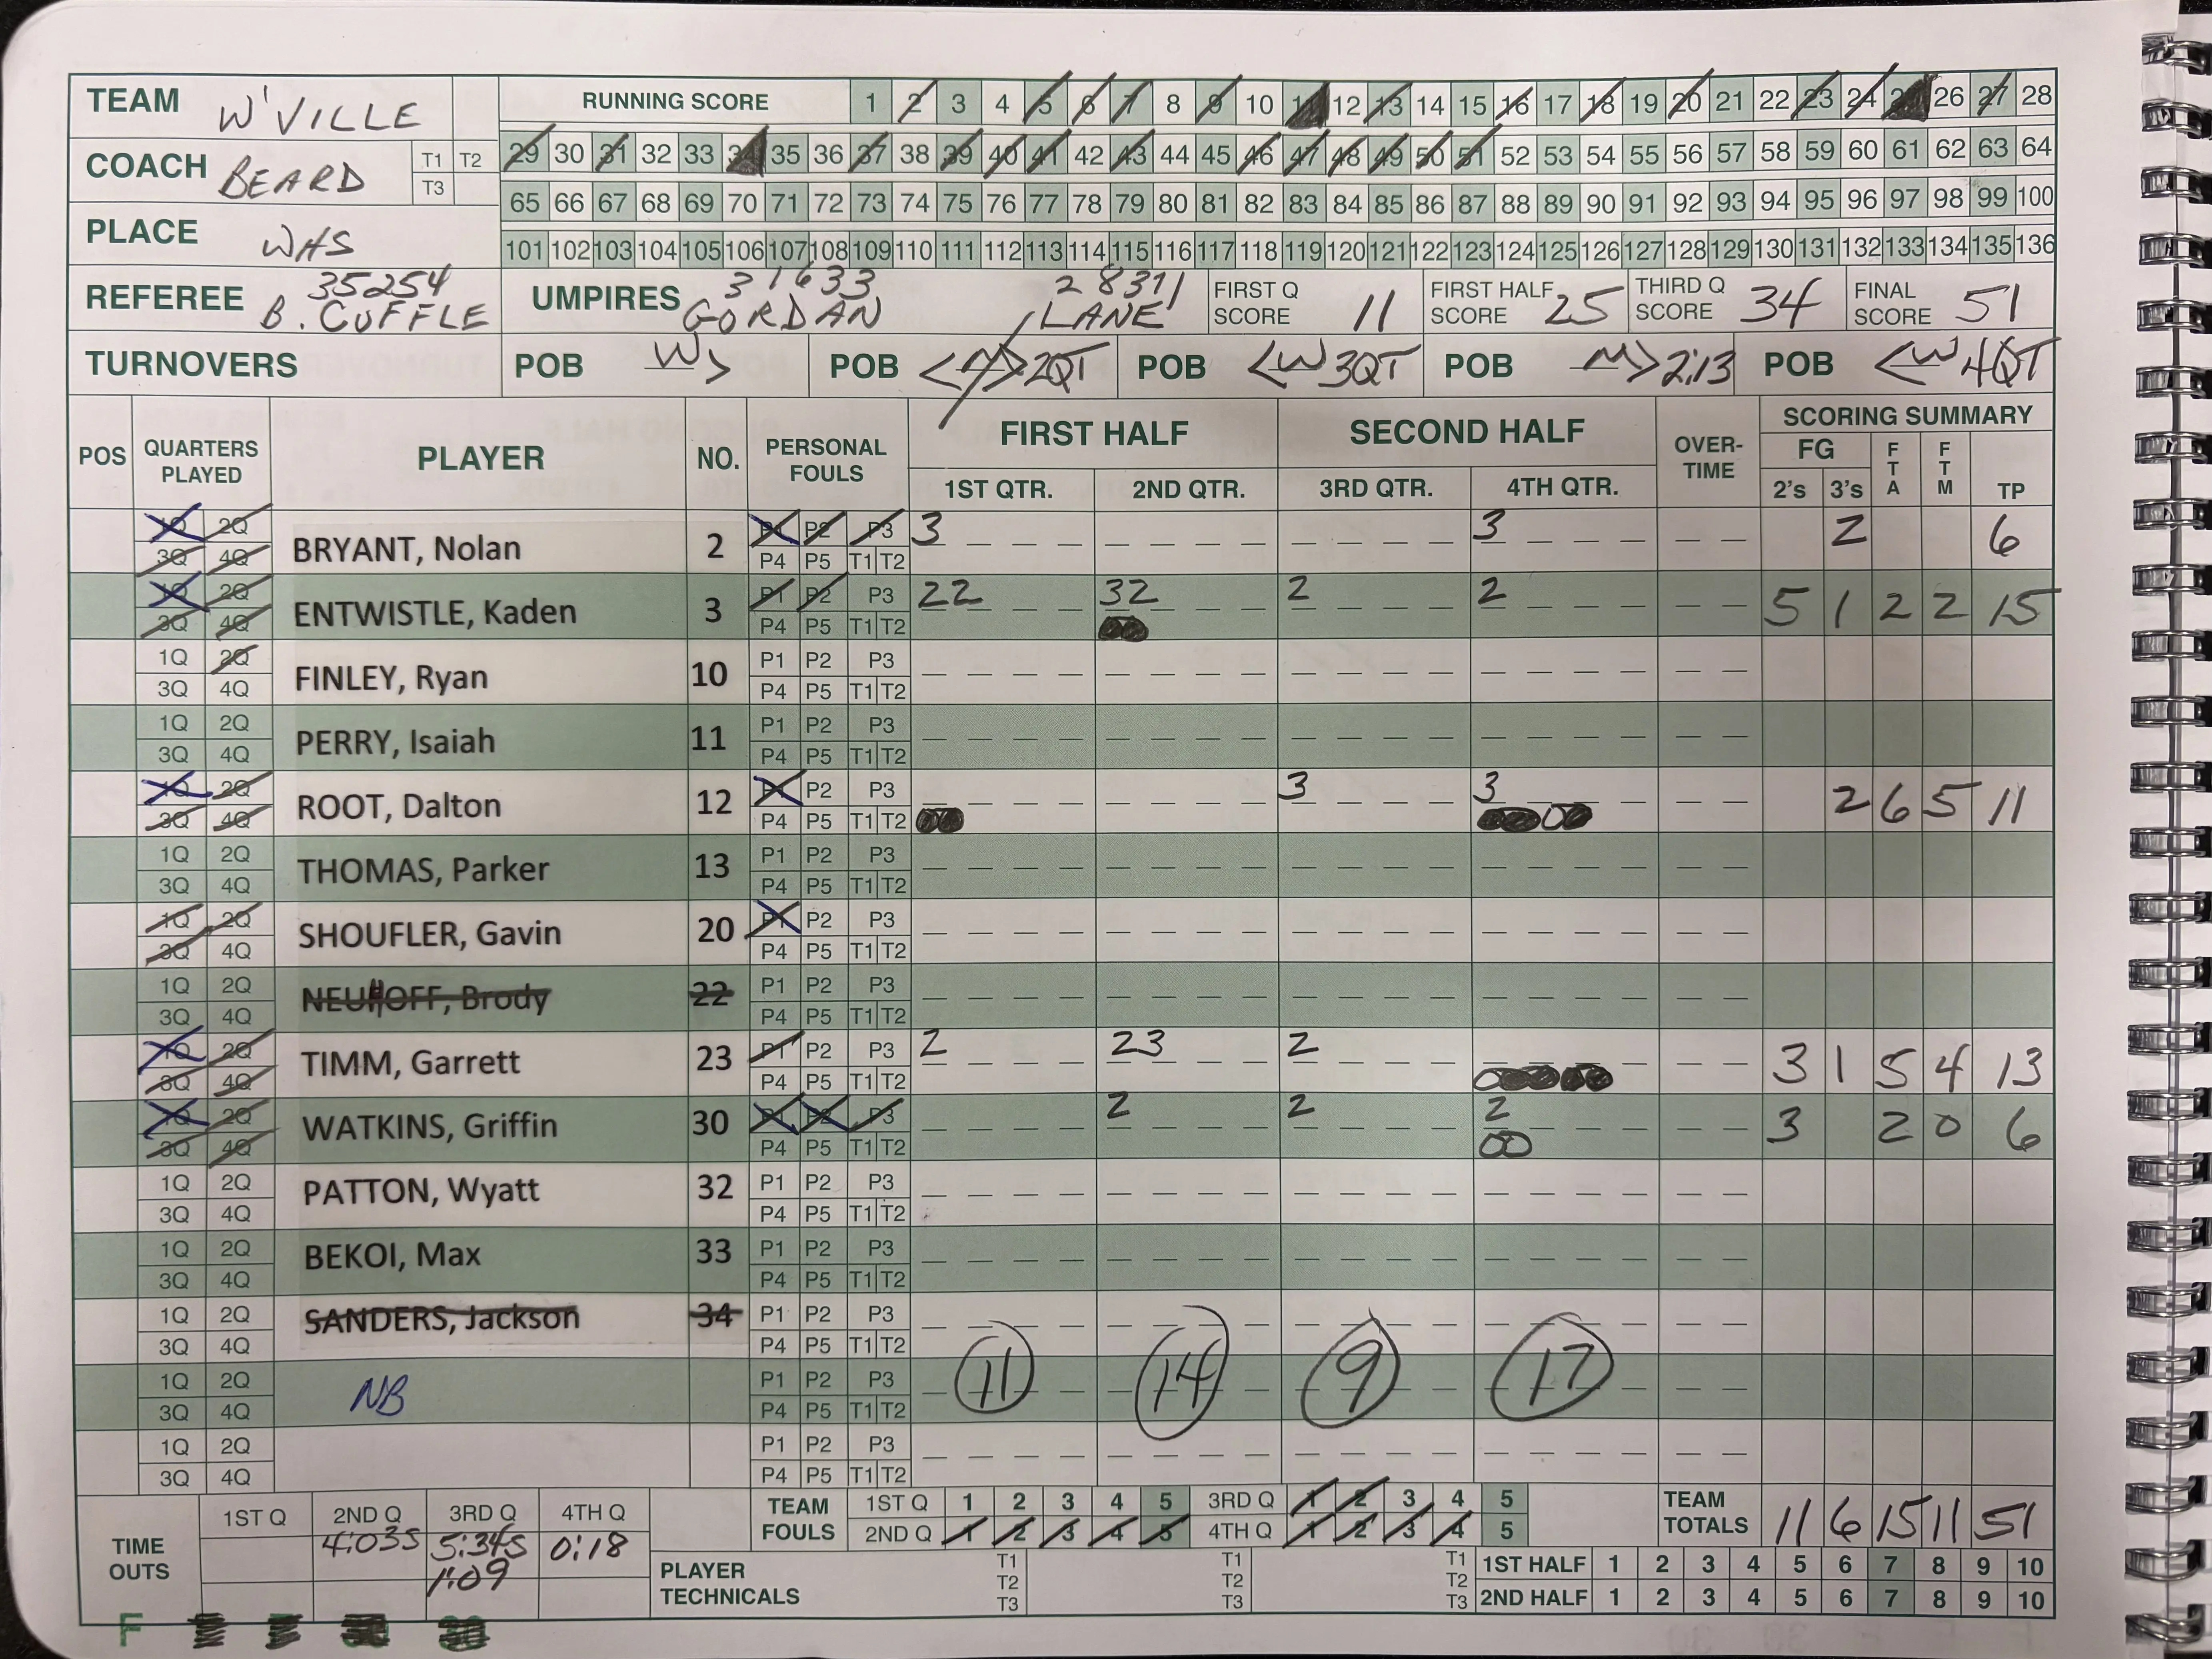 TEAM W'VILLE RUNNING SCORE 1 2 3 4 5 6 7 8 9 10 11 12 13 14 15 16 17 18 19 20 21 22 23 24 25 26 27 28
COACH BEARD T1 T2 T3 29 30 31 32 33 34 35 36 37 38 39 40 41 42 43 44 45 46 47 48 49 50 51 52 53 54 55 56 57 58 59 60 61 62 63 64
65 66 67 68 69 70 71 72 73 74 75 76 77 78 79 80 81 82 83 84 85 86 87 88 89 90 91 92 93 94 95 96 97 98 99 100
PLACE WHS 101 102 103 104 105 106 107 108 109 110 111 112 113 114 115 116 117 118 119 120 121 122 123 124 125 126 127 128 129 130 131 132 133 134 135 136
35254 31633 28371
REFEREE B. CUFFLE UMPIRES GORDAN / LANE FIRST Q SCORE 11 FIRST HALF SCORE 25 THIRD Q SCORE 34 FINAL SCORE 51
TURNOVERS POB W> POB <M>2QT POB <W 3QT POB M> 2:13 POB <W 4QT
POS QUARTERS PLAYED PLAYER NO. PERSONAL FOULS FIRST HALF SECOND HALF OVER-TIME SCORING SUMMARY
FG FTA FTM TP
1ST QTR. 2ND QTR. 3RD QTR. 4TH QTR. 2's 3's
1Q 2Q P1 P2 P3 3 3
3Q 4Q BRYANT, Nolan 2 P4 P5 T1 T2 2 6
1Q 2Q P1 P2 P3 22 32 2 2
3Q 4Q ENTWISTLE, Kaden 3 P4 P5 T1 T2 5 1 2 2 15
1Q 2Q P1 P2 P3
3Q 4Q FINLEY, Ryan 10 P4 P5 T1 T2
1Q 2Q P1 P2 P3
3Q 4Q PERRY, Isaiah 11 P4 P5 T1 T2
1Q 2Q P1 P2 P3 3 3
3Q 4Q ROOT, Dalton 12 P4 P5 T1 T2 2 6 5 11
1Q 2Q P1 P2 P3
3Q 4Q THOMAS, Parker 13 P4 P5 T1 T2
1Q 2Q P1 P2 P3
3Q 4Q SHOUFLER, Gavin 20 P4 P5 T1 T2
1Q 2Q P1 P2 P3
3Q 4Q NEUHOFF, Brody 22 P4 P5 T1 T2
1Q 2Q P1 P2 P3 2 23 2
3Q 4Q TIMM, Garrett 23 P4 P5 T1 T2 3 1 5 4 13
1Q 2Q P1 P2 P3 2 2 2
3Q 4Q WATKINS, Griffin 30 P4 P5 T1 T2 00 3 2 0 6
1Q 2Q P1 P2 P3
3Q 4Q PATTON, Wyatt 32 P4 P5 T1 T2
1Q 2Q P1 P2 P3
3Q 4Q BEKOI, Max 33 P4 P5 T1 T2
1Q 2Q P1 P2 P3
3Q 4Q SANDERS, Jackson 34 P4 P5 T1 T2
1Q 2Q P1 P2 P3
3Q 4Q NB P4 P5 T1 T2 11 14 9 17
1Q 2Q P1 P2 P3
3Q 4Q P4 P5 T1 T2
TIME OUTS 1ST Q 2ND Q 3RD Q 4TH Q TEAM FOULS 1ST Q 1 2 3 4 5 3RD Q 1 2 3 4 5 TEAM TOTALS 11 6 15 11 51
4:03S 5:34S 0:18 2ND Q 1 2 3 4 5 4TH Q 1 2 3 4 5
1:09 PLAYER TECHNICALS T1 T2 T3 T1 T2 T3 T1 T2 T3 1ST HALF 1 2 3 4 5 6 7 8 9 10
2ND HALF 1 2 3 4 5 6 7 8 9 10
F